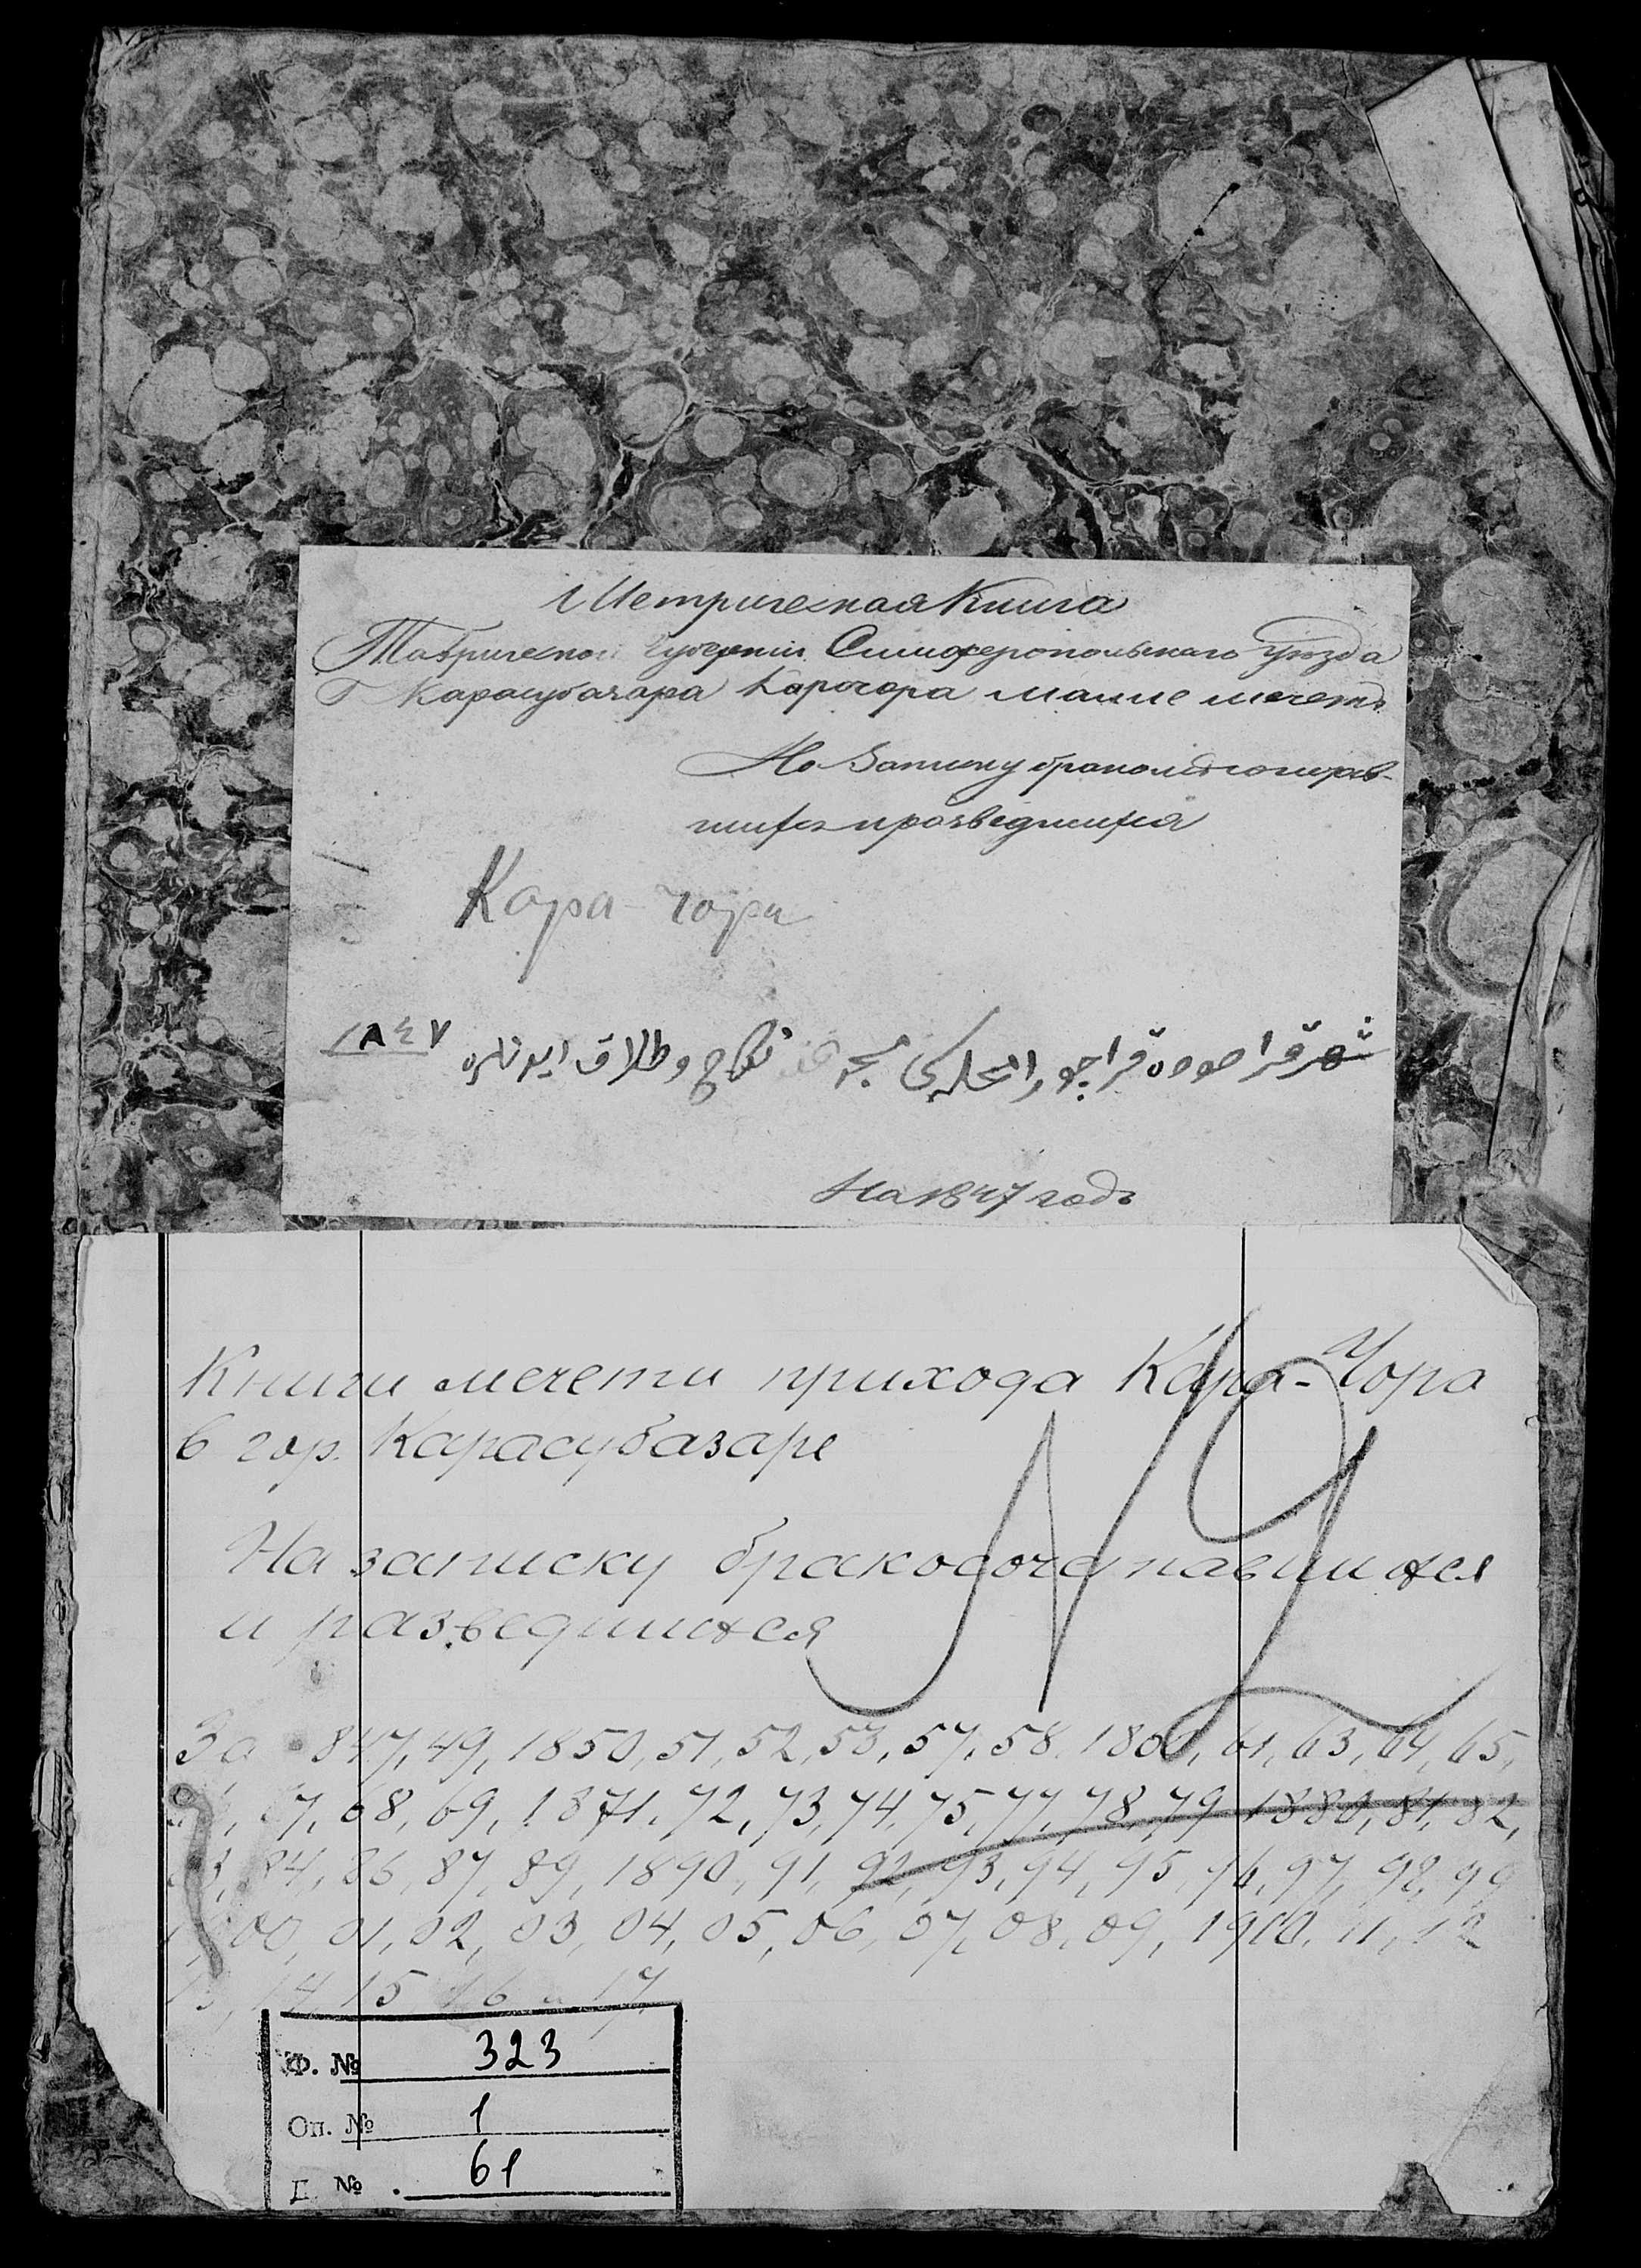 Метрическая Книга
Таврической Губернии Симферопольскаго Уезда
Г Карасубазара Карачора маале мечеть
На Записку бракосочетав-
шихся и розведшихся
Кара-чора
شهر قراصوده قراجورا محله‌سی نكاح و طلاق ١٨٤٧
На 1847 годъ
Книги мечети прихода Кара-Чора
в гор. Карасубазаре
На записку бракосочетавшихся
и разведшихся
№ 9
За 847, 49, 1850, 51, 52, 53, 57, 58, 1860, 61, 63, 64, 65,
67, 68, 69, 1871, 72, 73, 74, 75, 77, 78, 79 1880, 81, 82,
83, 84, 86, 87, 89, 1890, 91, 92, 93, 94, 95, 96, 97, 98, 99
1900, 01, 02, 03, 04, 05, 06, 07, 08, 09, 1910, 11, 12
13, 14, 15, 16 и 17
Ф. № 323
Оп. № 1
№ 61